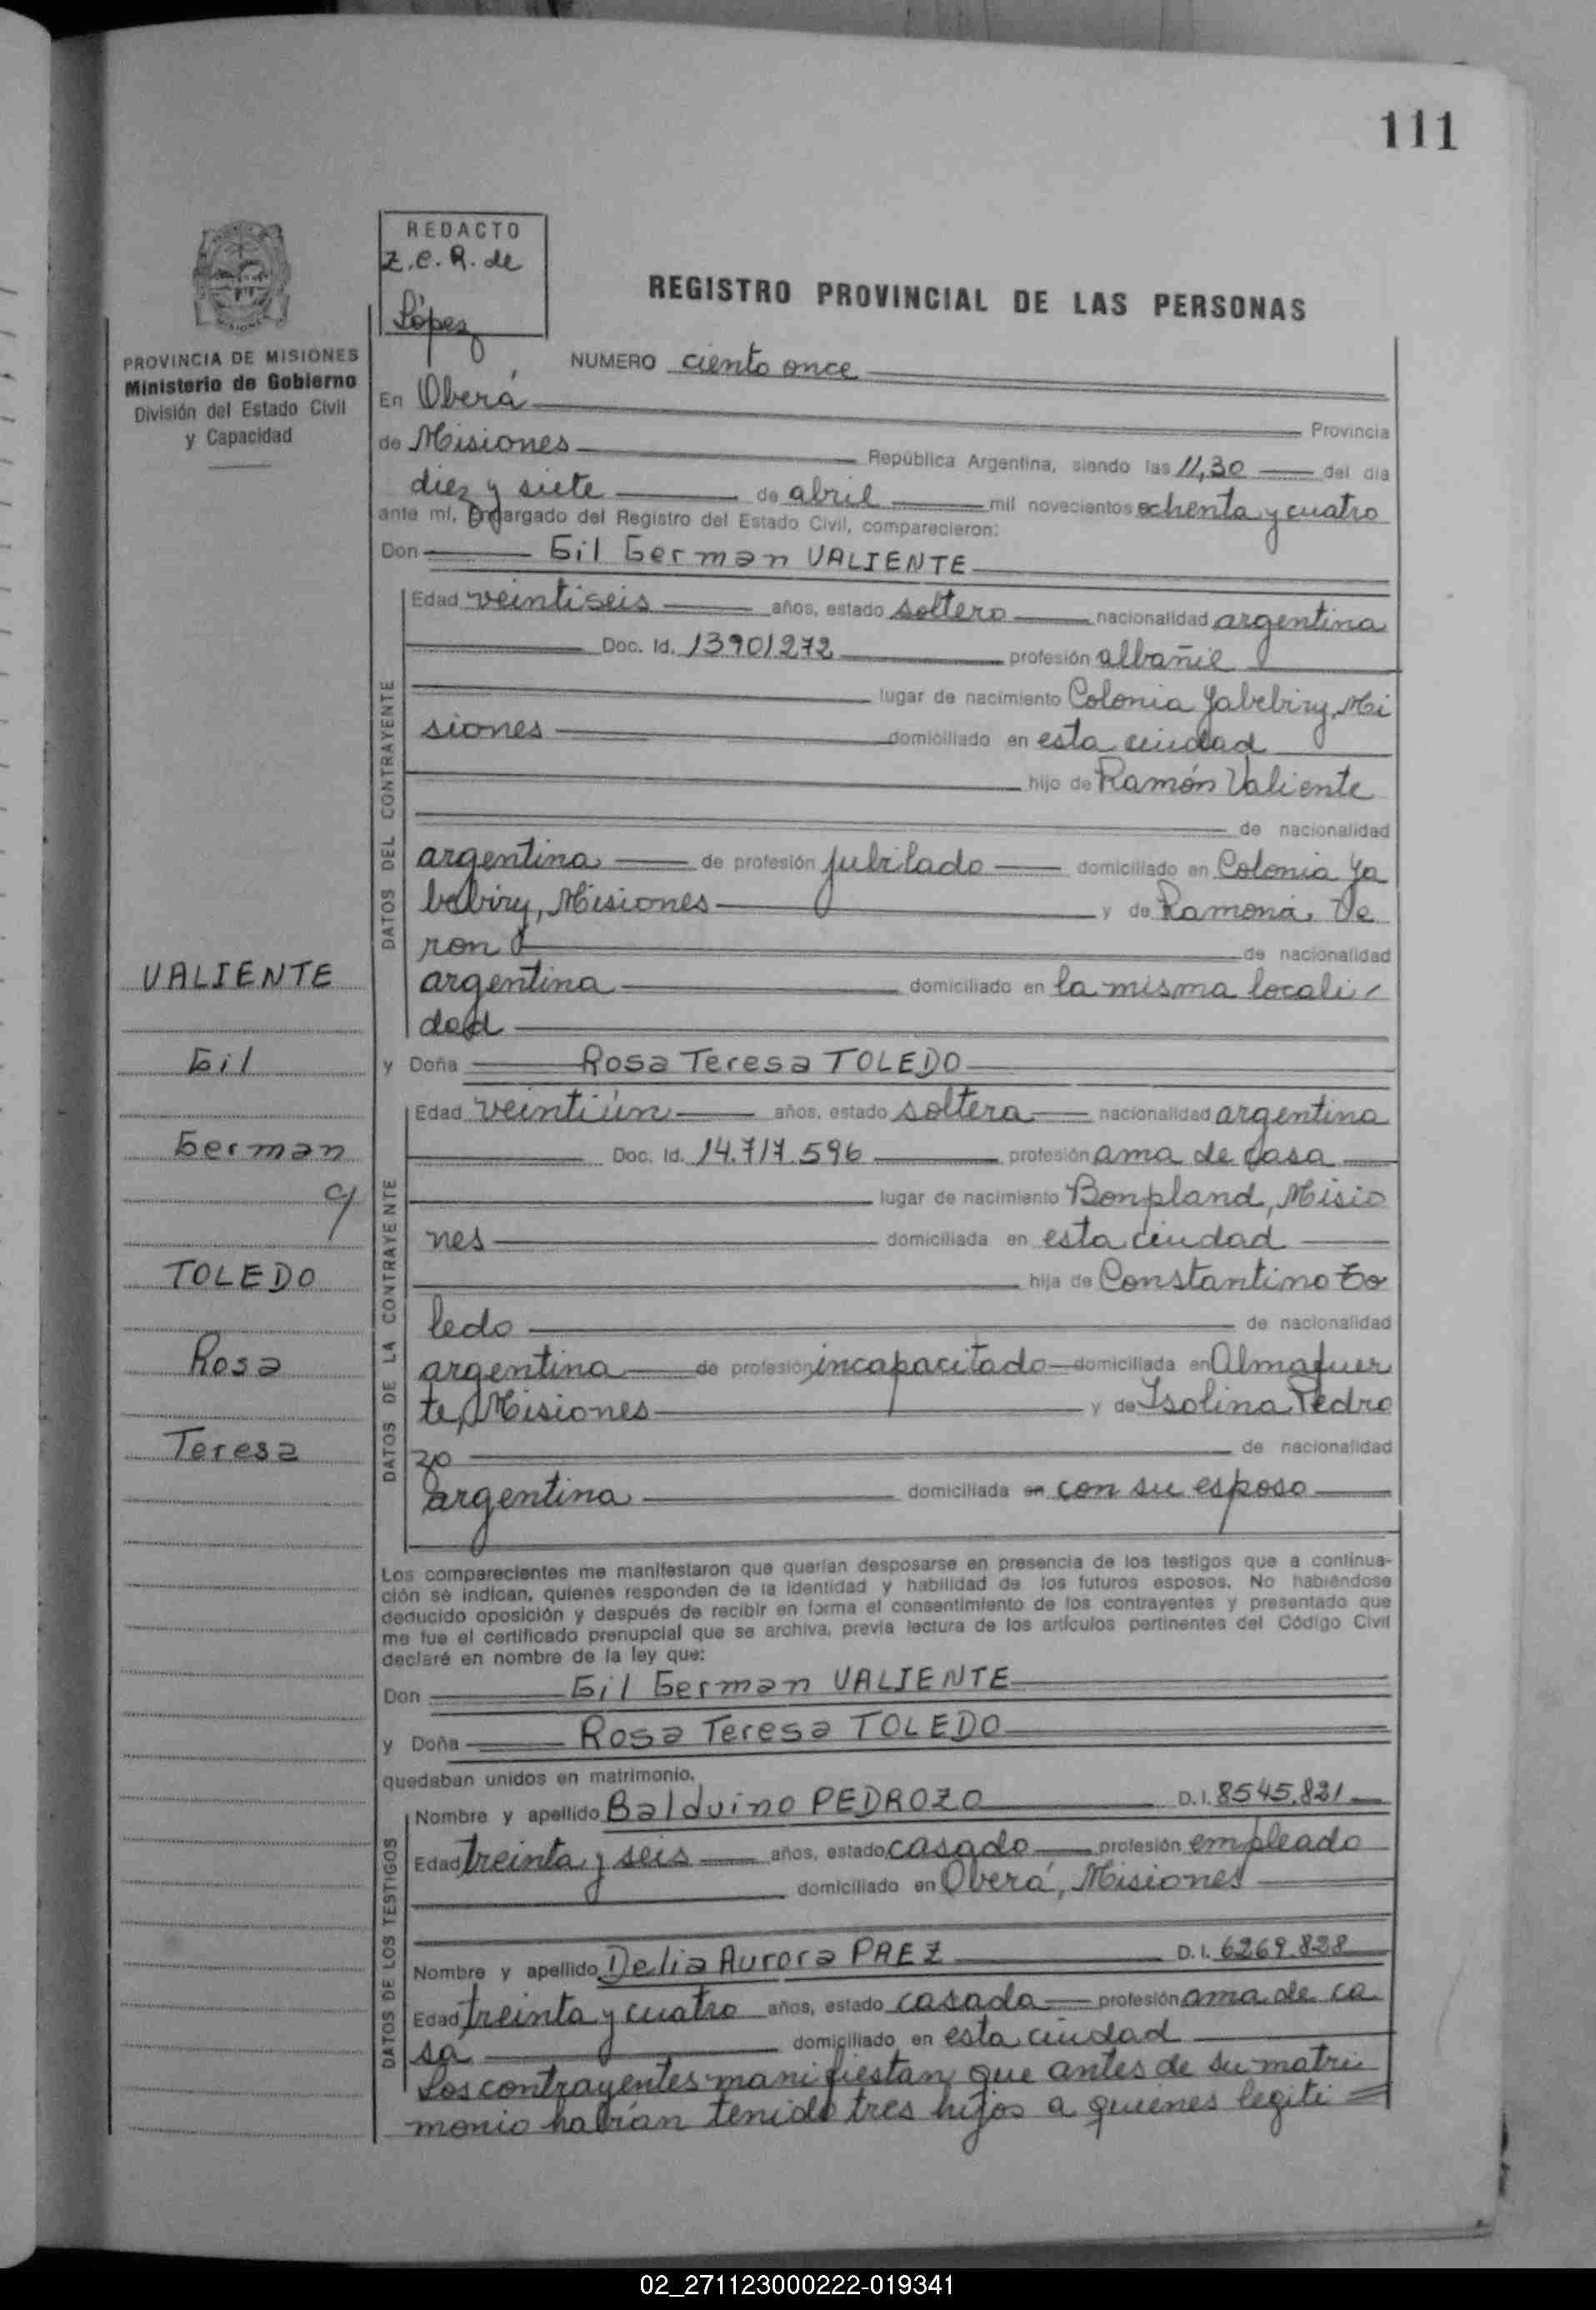 111
REDACTO
Z.C.R. de
López
REGISTRO PROVINCIAL DE LAS PERSONAS
PROVINCIA DE MISIONES
Ministerio de Gobierno
División del Estado Civil
y Capacidad
NUMERO ciento once
En Oberá
Provincia
de Misiones República Argentina, siendo las 11,30 del día
diez y siete de abril mil novecientos ochenta y cuatro
ante mí, Encargado del Registro del Estado Civil, comparecieron:
Don Gil German VALIENTE
DATOS DEL CONTRAYENTE
Edad veintiseis años, estado soltero nacionalidad argentina
Doc. Id. 13901272 profesión albañil
lugar de nacimiento Colonia Yabebiry, Mi
siones domiciliado en esta ciudad
hijo de Ramón Valiente
de nacionalidad
argentina de profesión jubilado domiciliado en Colonia Ya
bebiry, Misiones y de Ramona Ve
ron de nacionalidad
argentina domiciliado en la misma locali
dad
y Doña Rosa Teresa TOLEDO
VALIENTE
Gil
German
y
TOLEDO
Rosa
Teresa
DATOS DE LA CONTRAYENTE
Edad veintiún años, estado soltera nacionalidad argentina
Doc. Id. 14.717.596 profesión ama de casa
lugar de nacimiento Bonpland, Misio
nes domiciliada en esta ciudad
hija de Constantino To
ledo de nacionalidad
argentina de profesión incapacitado domiciliada en Almafuer
te, Misiones y de Isolina Pedro
zo de nacionalidad
argentina domiciliada en con su esposo
Los comparecientes me manifestaron que querían desposarse en presencia de los testigos que a continua-
ción se indican, quienes responden de la identidad y habilidad de los futuros esposos. No habiéndose
deducido oposición y después de recibir en forma el consentimiento de los contrayentes y presentado que
me fue el certificado prenupcial que se archiva, previa lectura de los artículos pertinentes del Código Civil
declaré en nombre de la ley que:
Don Gil German VALIENTE
y Doña Rosa Teresa TOLEDO
quedaban unidos en matrimonio.
DATOS DE LOS TESTIGOS
Nombre y apellido Balduino PEDROZO D.I. 8545.821
Edad treinta y seis años, estado casado profesión empleado
domiciliado en Oberá, Misiones
Nombre y apellido Delia Aurora PAEZ D.I. 6269.828
Edad treinta y cuatro años, estado casada profesión ama de ca
sa domiciliado en esta ciudad
Los contrayentes manifiestan que antes de su matri
monio habían tenido tres hijos a quienes legiti
02_271123000222-019341